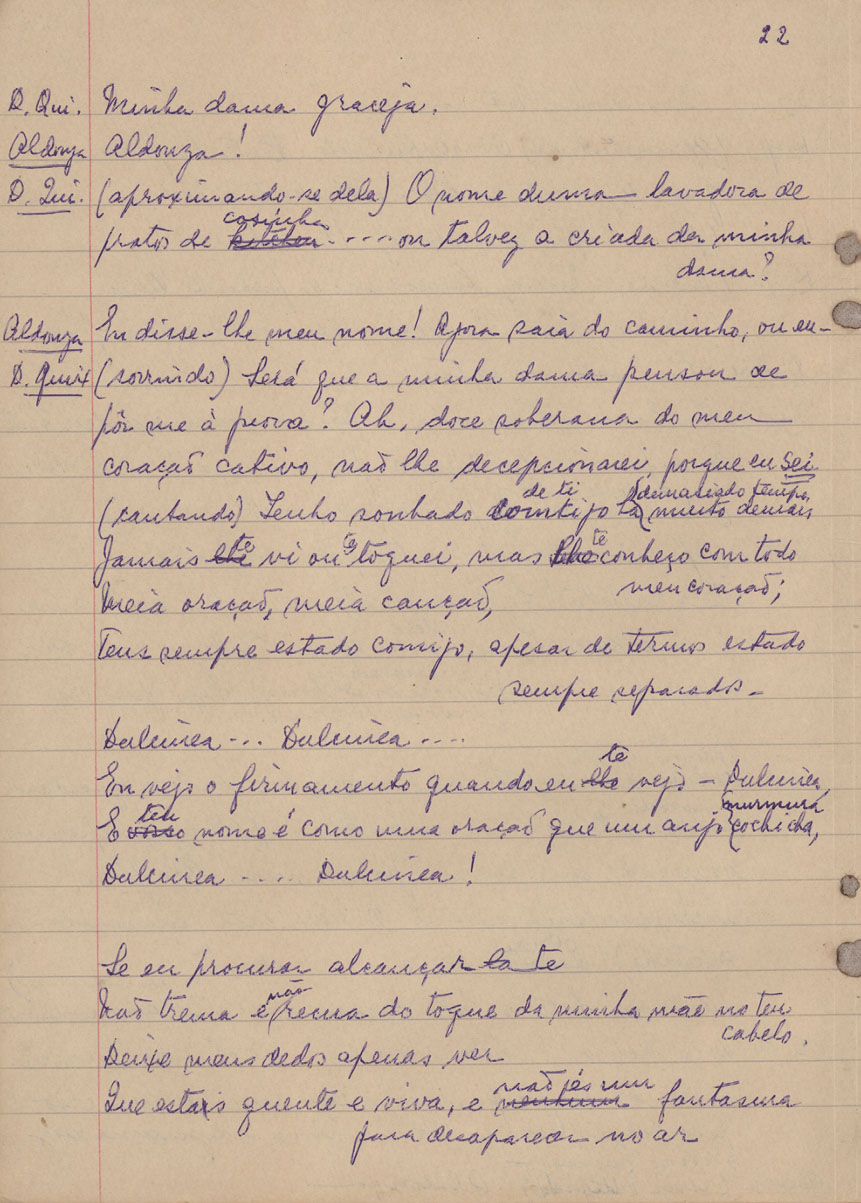 22
D. Qui. Minha dama graceja.
Aldonza Aldonza!
D. Qui. (aproximando-se dela) O nome duma lavadora de
cosinha
pratos de kitchen ----- ou talvez a criada da minha
dama?
Aldonza Eu disse-lhe meu nome! Agora saia do caminho, ou eu-
D. Quix (sorrindo) Será que a minha dama pensou de
pôr me à prova? Ah, doce soberana do meu
coração cativo, não lhe decepcionarei, porque eu sei.
de ti demasiado tempo,
(cantando) Tenho sonhado contigo há muito demais
te te te
Jamais lhe vi ou toquei, mas lhe conheço com todo
meu coração;
Meia oração, meia canção,
Tens sempre estado comigo, apesar de termos estado
sempre separados-
Dulcinea --- Dulcinea ----
te
Eu vejo o firmamento quando eu lhe vejo - Dulcinea,
teu murmura
E vosso nome é como uma oração que um anjo cochicha,
Dulcinea ---- Dulcinea!
Se eu procurar alcançar la te
não
Não trema e recua do toque da minha mão no teu
cabelo.
Deixe meus dedos apenas ver
não és um
Que estais quente e viva, e nenhum fantasma
para desaparecer no ar